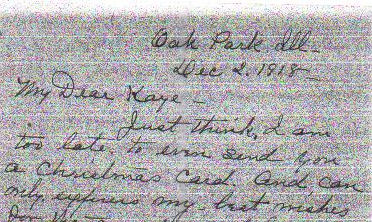 Oak Park Ill-
Dec 2. 1918-
My Dear Kaye-
Just think, I am
too late to even send you
a Christmas Card. And can
only express my best wishes